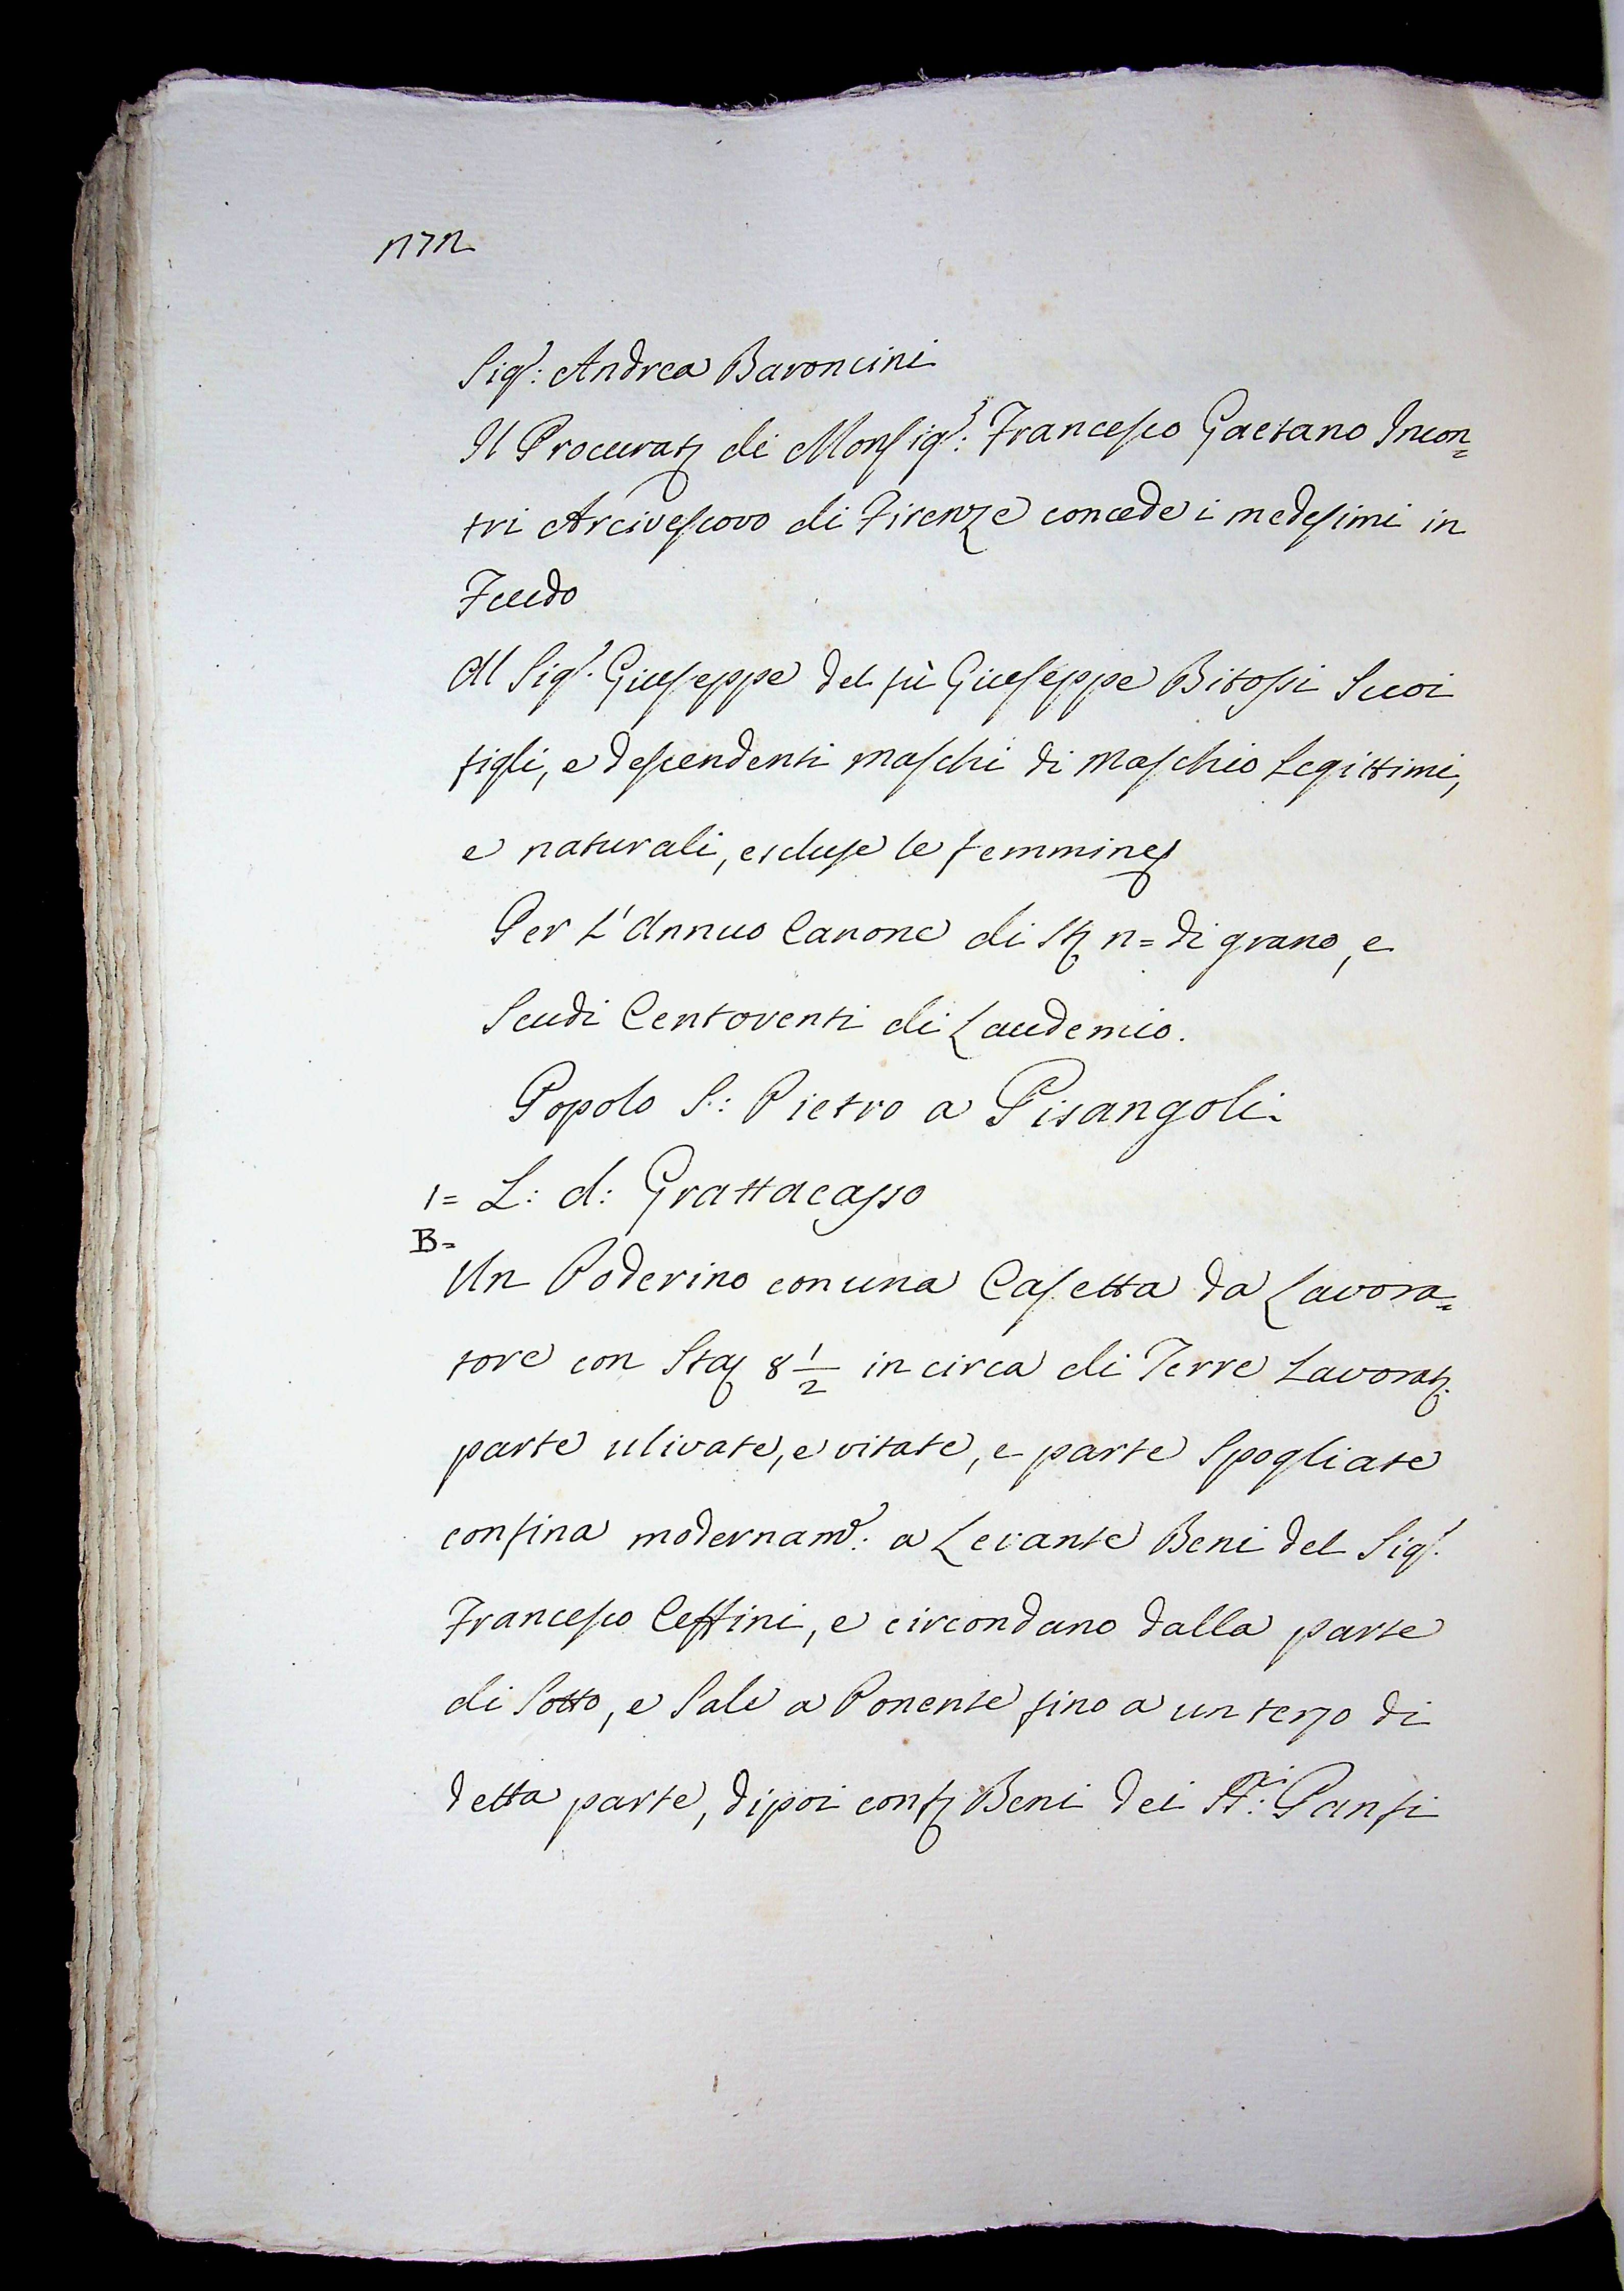 1172
Sig.r: Andrea Baroncini
Il Procurat. di Monsig.r: Francesco Gaetano Incon=
tri Arcivescovo di Firenze concede i medesimi in
Feudo
Al Sig.r Giuseppe del fù Giuseppe Bitossi Suoi
figli, e descendenti maschi di maschio Legittimi,
e naturali, escluse le femmine
Per L'Annuo Canone di St. n= di grano, e
Scudi Centoventi di Laudemio.
Popolo S.: Pietro a Pisangoli.
1= L: d: Grattacasso
B=
Un Poderino con una Casetta da Lavora=
tore con Sta 8 1/2 in circa di Terre Lavorat.
parte ulivate, e vitate, e parte Spogliate
confina modernam.e: a Levante Beni del Sig.r
Francesco Ceffini, e circondano dalla parte
di Sotto, e Sale a Ponente fino a un terzo di
detta parte, dipoi conf. Beni dei SS.ri: Panfi